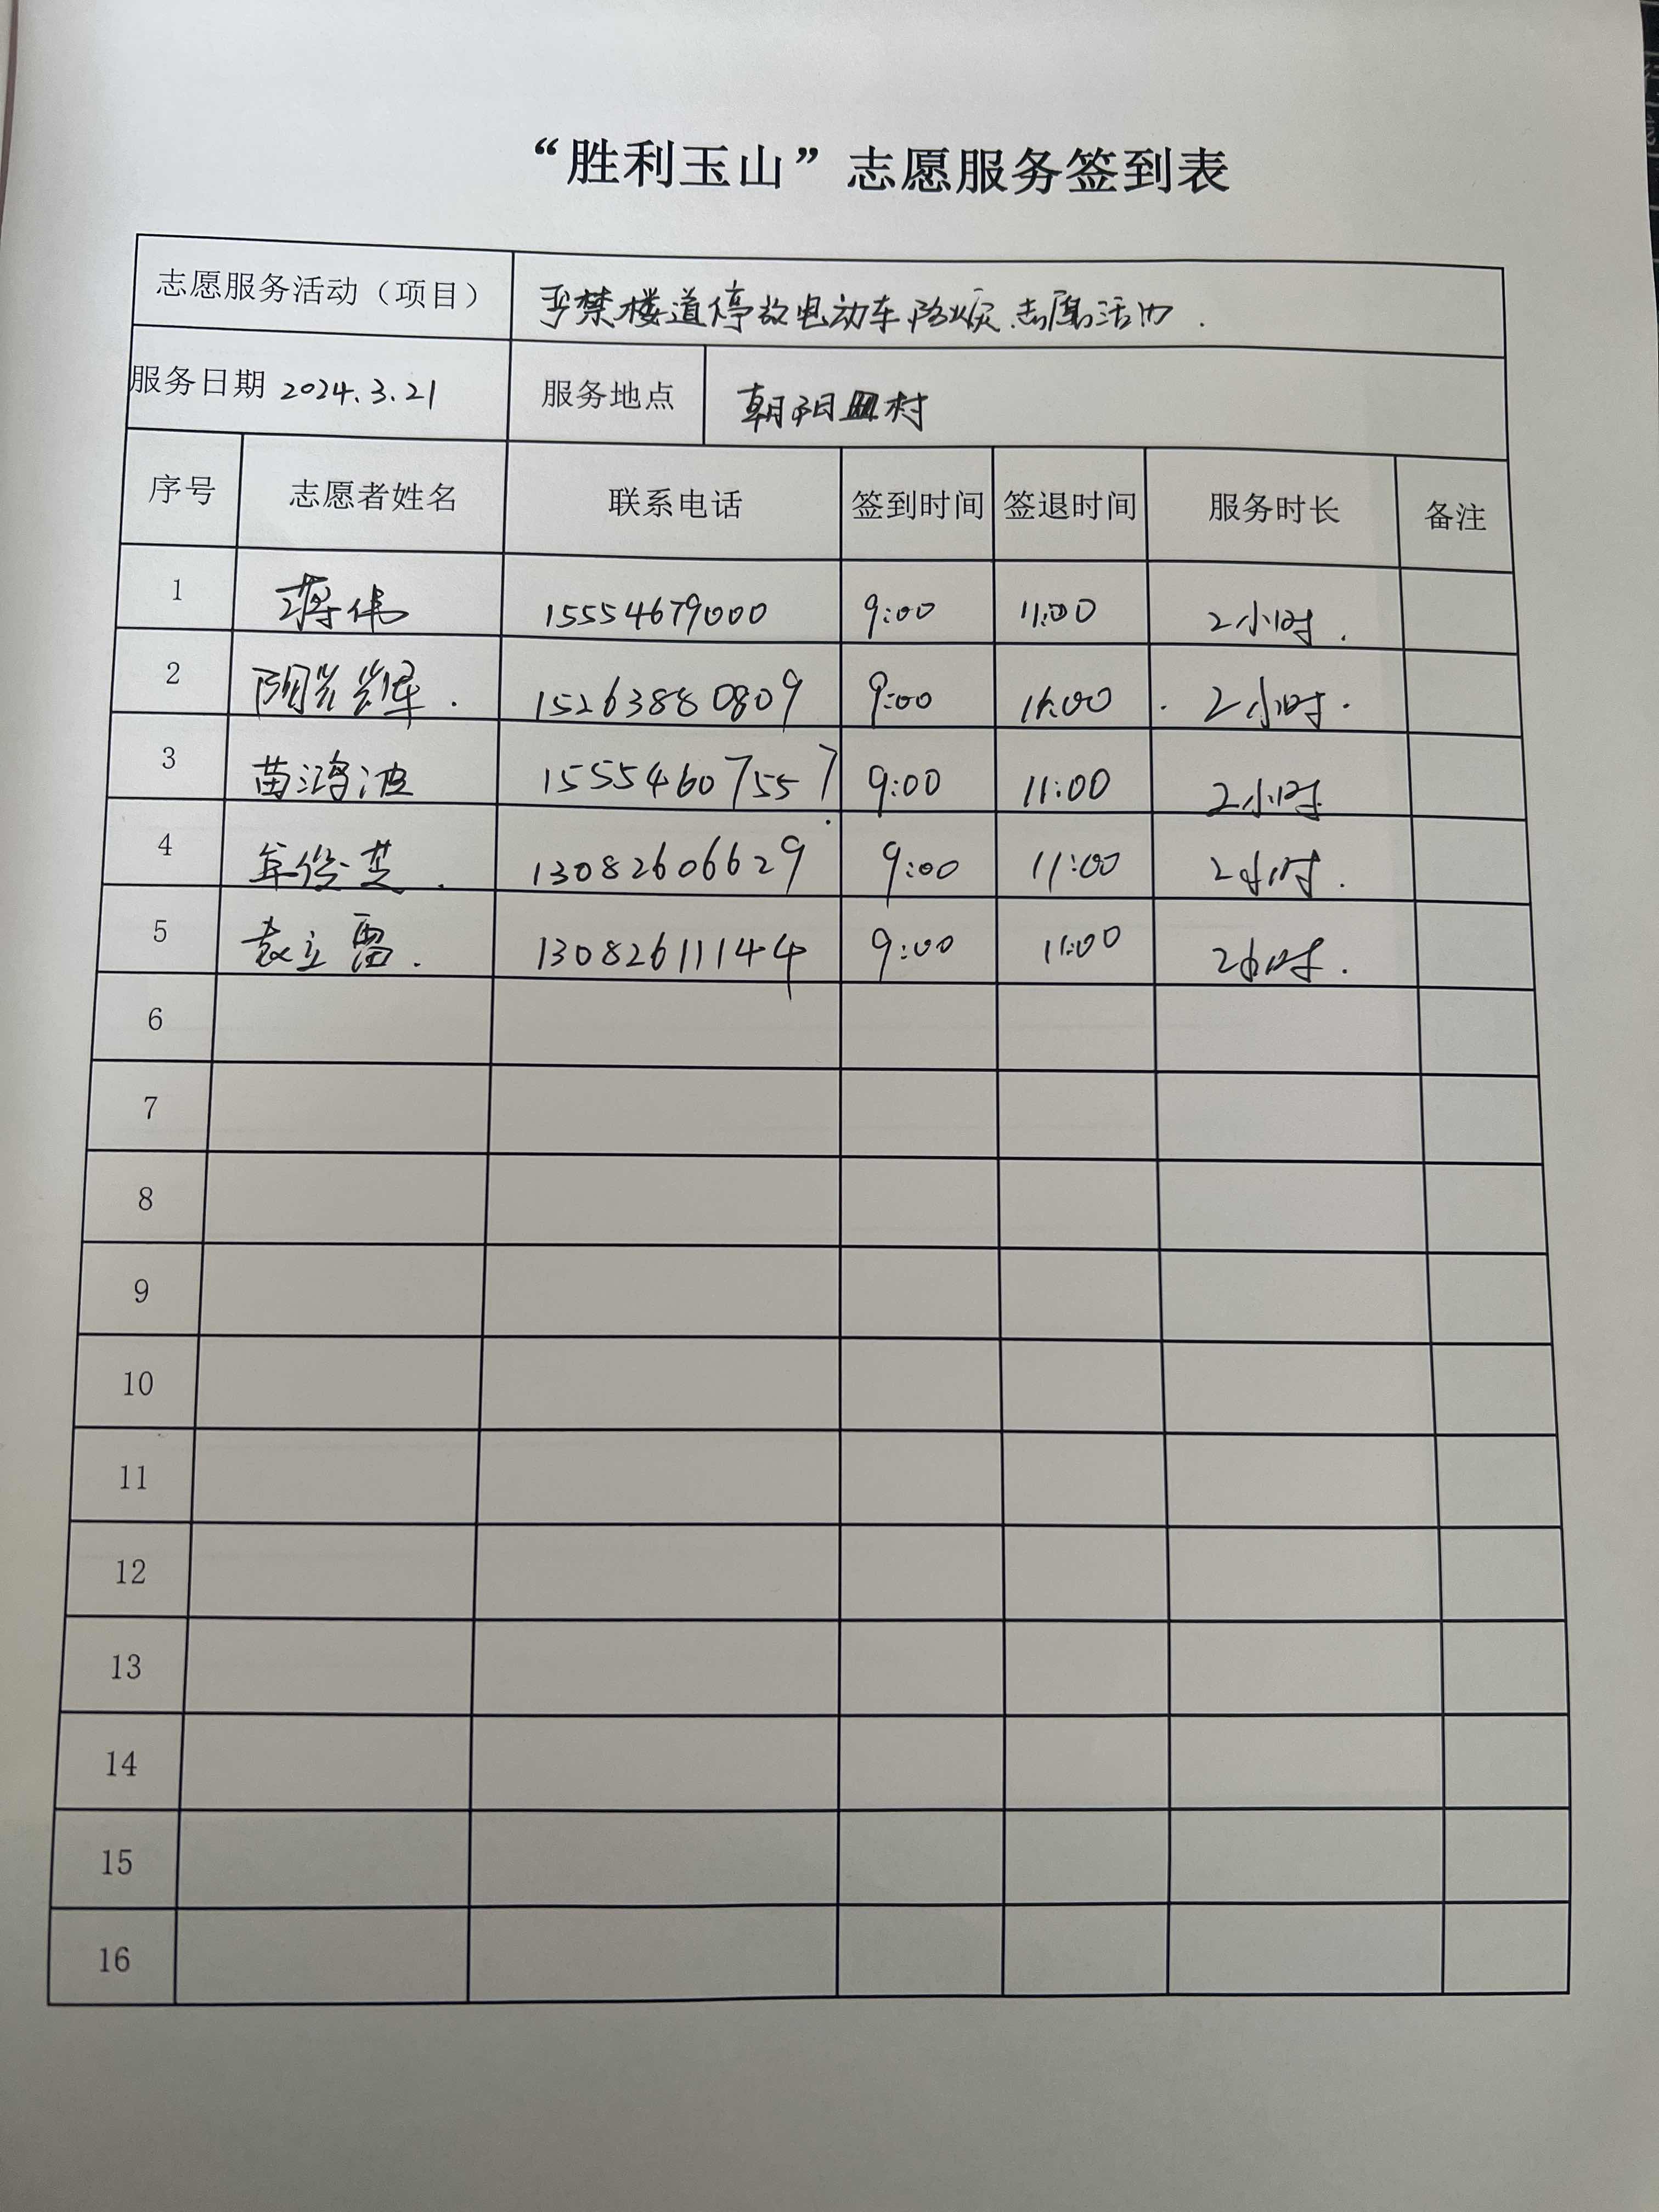 “胜利玉山”志愿服务签到表
志愿服务活动（项目） 严禁楼道停放电动车 志愿活动.
服务日期 2024.3.21 服务地点 朝阳 村
序号 志愿者姓名 联系电话 签到时间 签退时间 服务时长 备注
1 蒋伟 15554679000 9:00 11:00 2小时.
2 15263880809 9:00 11:00 2小时.
3 苗鸿波 15554607557 9:00 11:00 2小时
4 13082606629 9:00 11:00 2小时.
5 袁立 13082611144 9:00 11:00 2小时.
6
7
8
9
10
11
12
13
14
15
16